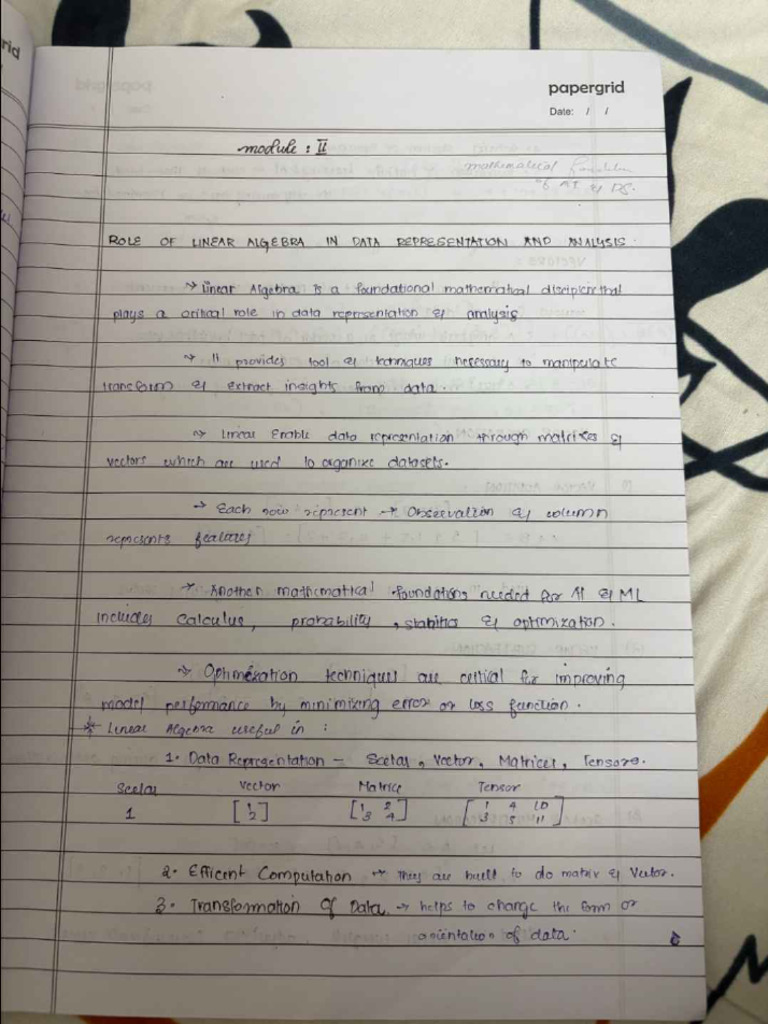 papergrid
Date: / /
module : II
mathematical foundation
of AI & DS.
ROLE OF LINEAR ALGEBRA IN DATA REPRESENTATION AND ANALYSIS.
→ Linear Algebra is a foundational mathematical discipline that
plays a critical role in data representation & analysis
→ It provides tool & techniques necessary to manipulate
transform & extract insights from data.
→ Linear Enable data representation through matrixes &
vectors which are used to organize datasets.
→ Each row represent → Observation & column
represents features
→ Another mathematical foundations needed for AI & ML
includes calculus, probability, & optimization.
→ Optimization techniques are critical for improving
model performance by minimizing error or loss function.
* Linear Algebra useful in :
1. Data Representation – Scelar, Vector, Matrices, Tensors.
Scelar Vector Matrice Tensor
1 [1 2] [1 2 3 4] [1 4 10 3 5 11]
2. Efficent Computation → They are built to do matrix & Vector.
3. Transformation Of Data → helps to change the form or
orientation of data.